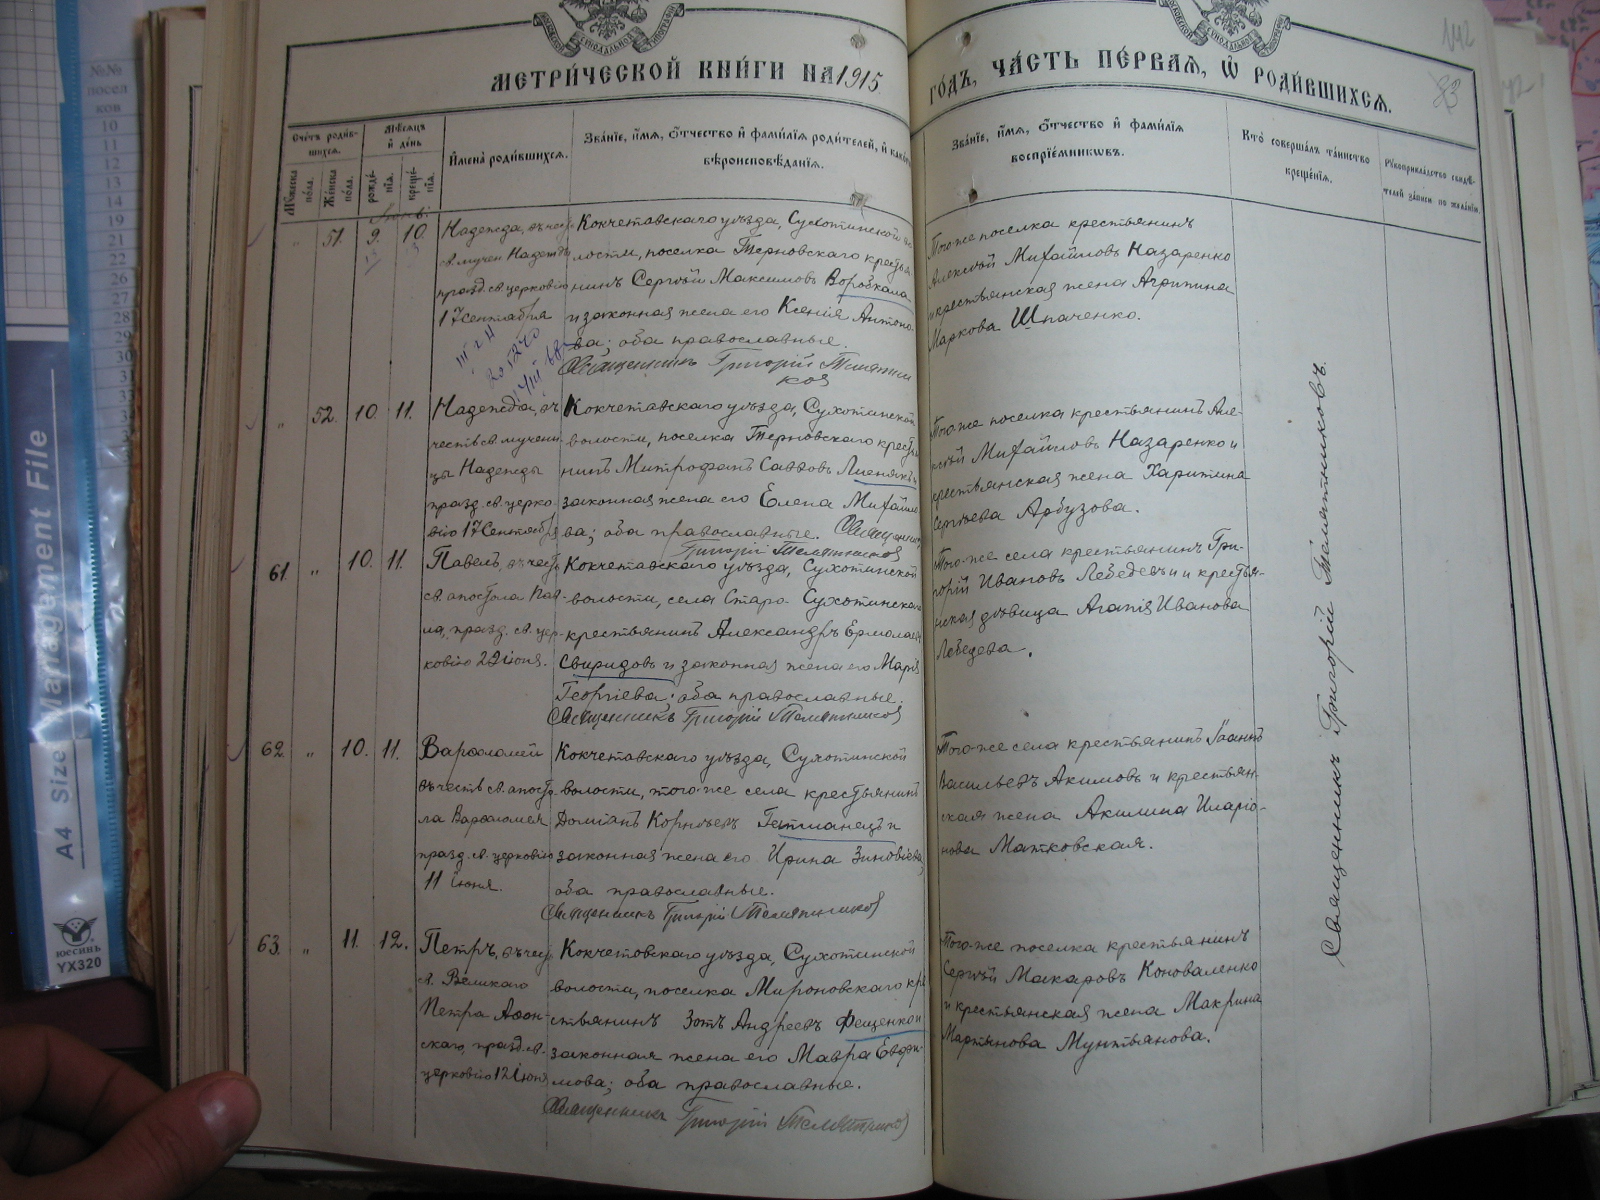 МЕТРИ́ЧЕСКОЙ КНИ́ГИ НА 1915 ГО́ДЪ, ЧА́СТЬ ПЕ́РВАѦ, Ѽ РОДИ́ВШИХСѦ.
142
83
Сче́тъ роди́в-
шихсѧ.
Мѣ́сѧцъ
и҆ де́нь
И҆мена̀ роди́вшихсѧ.
Зва́нїе, и҆́мѧ, ѻ҆́тчество и҆ фами́лїѧ роди́телей, и҆
вѣроисповѣ́данїѧ.
Зва́нїе, и҆́мѧ, ѻ҆́тчество и҆ фами́лїѧ
воспрїе́мникѡвъ.
Кто̀ соверша́лъ та́инство
креще́нїѧ.
Рꙋкоприкла́дство свидѣ́-
телей за́писи по жела́нїю.
Мꙋ́жеска
по́ла.
Же́нска
по́ла.
рожде́-
нїѧ.
креще́-
нїѧ.
„ 51. 9. 10.
Надежда, въ чес.
св. мучен Надежды
празд. св. церковію
17 Сентября
Кокчетавскаго уѣзда, Сухотинской во-
лости, поселка Терновскаго крестья-
нинъ Сергѣй Максимовъ
и законная жена его Ксенія Антоно-
ва; оба православные.
Священникъ Григорій Телятников
Того-же поселка крестьянинъ
Алексѣй Михайловъ Назаренко
и крестьянская жена Агрипина
Маркова Шпаченко.
„ 52. 10. 11.
Надежда, въ
честь св. мучени-
цы Надежды
празд. св. церко-
вію 17 Сентября
Кокчетавскаго уѣзда, Сухотинской
волости, поселка Терновскаго крестья-
нинъ Митрофанъ Савовъ
законная жена его Елена Михайло-
ва; оба православные. Священникъ
Григорій Телятников
Того-же поселка крестьянинъ Але-
ксѣй Михайловъ Назаренко и
крестьянская жена Харитина
Сергѣева Арбузова.
61. „ 10. 11.
Павелъ, въ честь
св. апостола Пав-
ла, празд. св. цер-
ковію 29 іюня.
Кокчетавскаго уѣзда, Сухотинской
волости, села Старо-Сухотинскаго
крестьянинъ Александръ Ермолаевъ
Свиридовъ и законная жена его Марія
Георгіева; оба православные.
Священникъ Григорій Телятников
Того-же села крестьянинъ Гри-
горій Ивановъ Лебедевъ и крестьян-
ская дѣвица Агапія Иванова
Лебедева.
62. „ 10. 11.
Варѳоломей
въ честь св. апосто-
ла Варѳоломея
празд. св. церковію
11 іюня.
Кокчетавскаго уѣзда, Сухотинской
волости, того-же села крестьянинъ
Даміанъ Корнѣевъ Гетманецъ и
законная жена его Ирина Зиновіева
оба православные.
Священникъ Григорій Телятников
Того-же села крестьянинъ Іоаннъ
Васильевъ Акимовъ и крестьян-
ская жена Акилина Иларіо-
нова Матковская.
63. „ 11. 12.
Петръ, въ чест
св. Великаго
Петра Аѳон-
скаго, празд. св.
церковію 12 іюня
Кокчетовскаго уѣзда, Сухотинской
волости, поселка Мироновскаго кре-
стьянинъ Зотъ Андреевъ Фещенко и
законная жена его Мавра Евфи-
мова; оба православные.
Священникъ Григорій Телятников
Того-же поселка крестьянинъ
Сергѣй Макаровъ Коноваленко
и крестьянская жена Макрина
Мартьянова Мунтьянова.
Священникъ Григорій Телятниковъ.
A4 Size Management File
юссинъ
YX320
№№
посел
ков
10
11
12
13
14
19
21
22
26
27
28
29
30